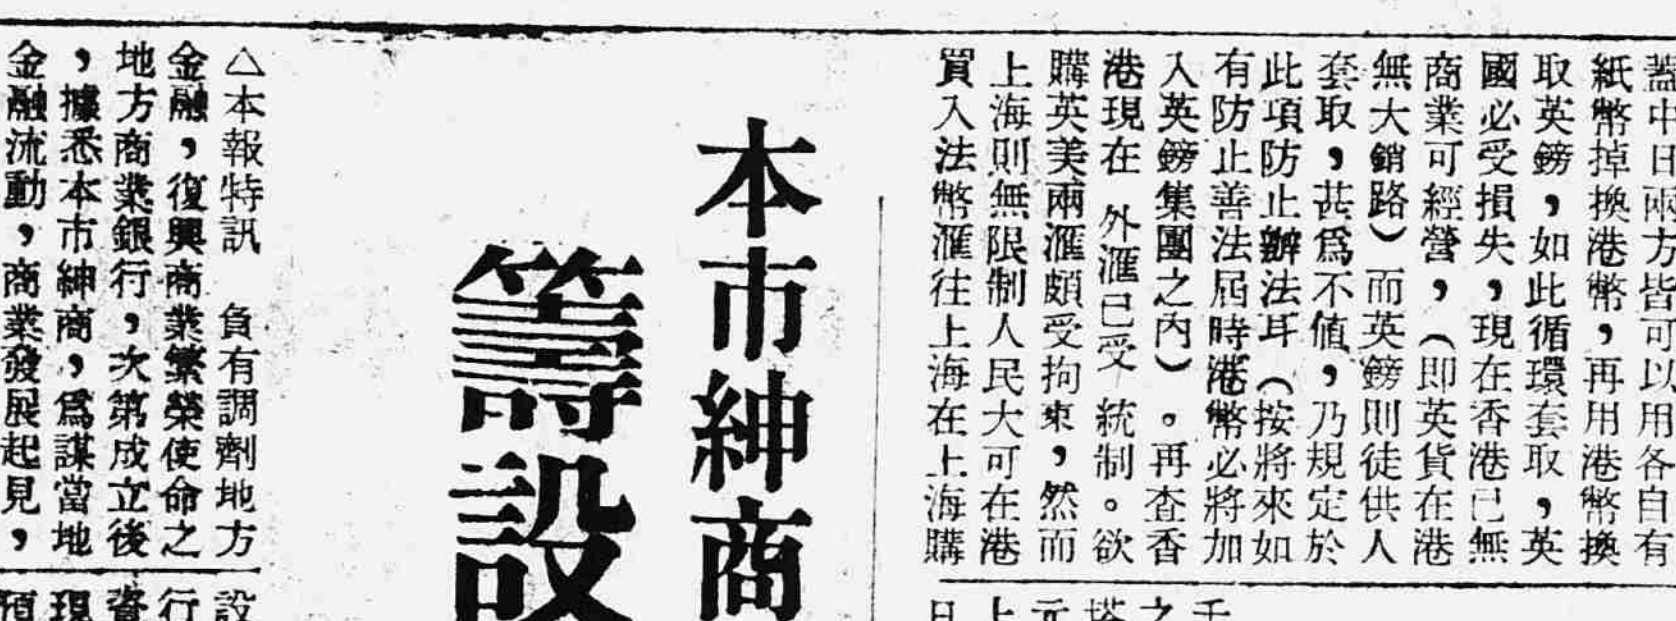 蓋中日兩方皆可以用各自有
紙幣掉換港幣，再用港幣換
取英鎊，如此循環套取，英
國必受損失，現在香港已無
商業可經營，（即英貨在港
無大銷路）而英鎊則徒供人
套取，甚爲不值，乃規定於
此項防止辦法耳（按將來如
有防止善法屆時港幣必將加
入英鎊集團之內）。再查香
港現在　外滙已受　統制。欲
購英美兩滙頗受拘束，然而
上海則無限制人民大可在港
買入法幣滙往上海在上海購
千
之
塔
元
上
日
本市紳商
籌設
△本報特訊　負有調劑地方
金融，復興商業繁榮使命之
地方商業銀行，次第成立後
，據悉本市紳商，爲謀當地
金融流動，商業發展起見，
設
行
資
現
預